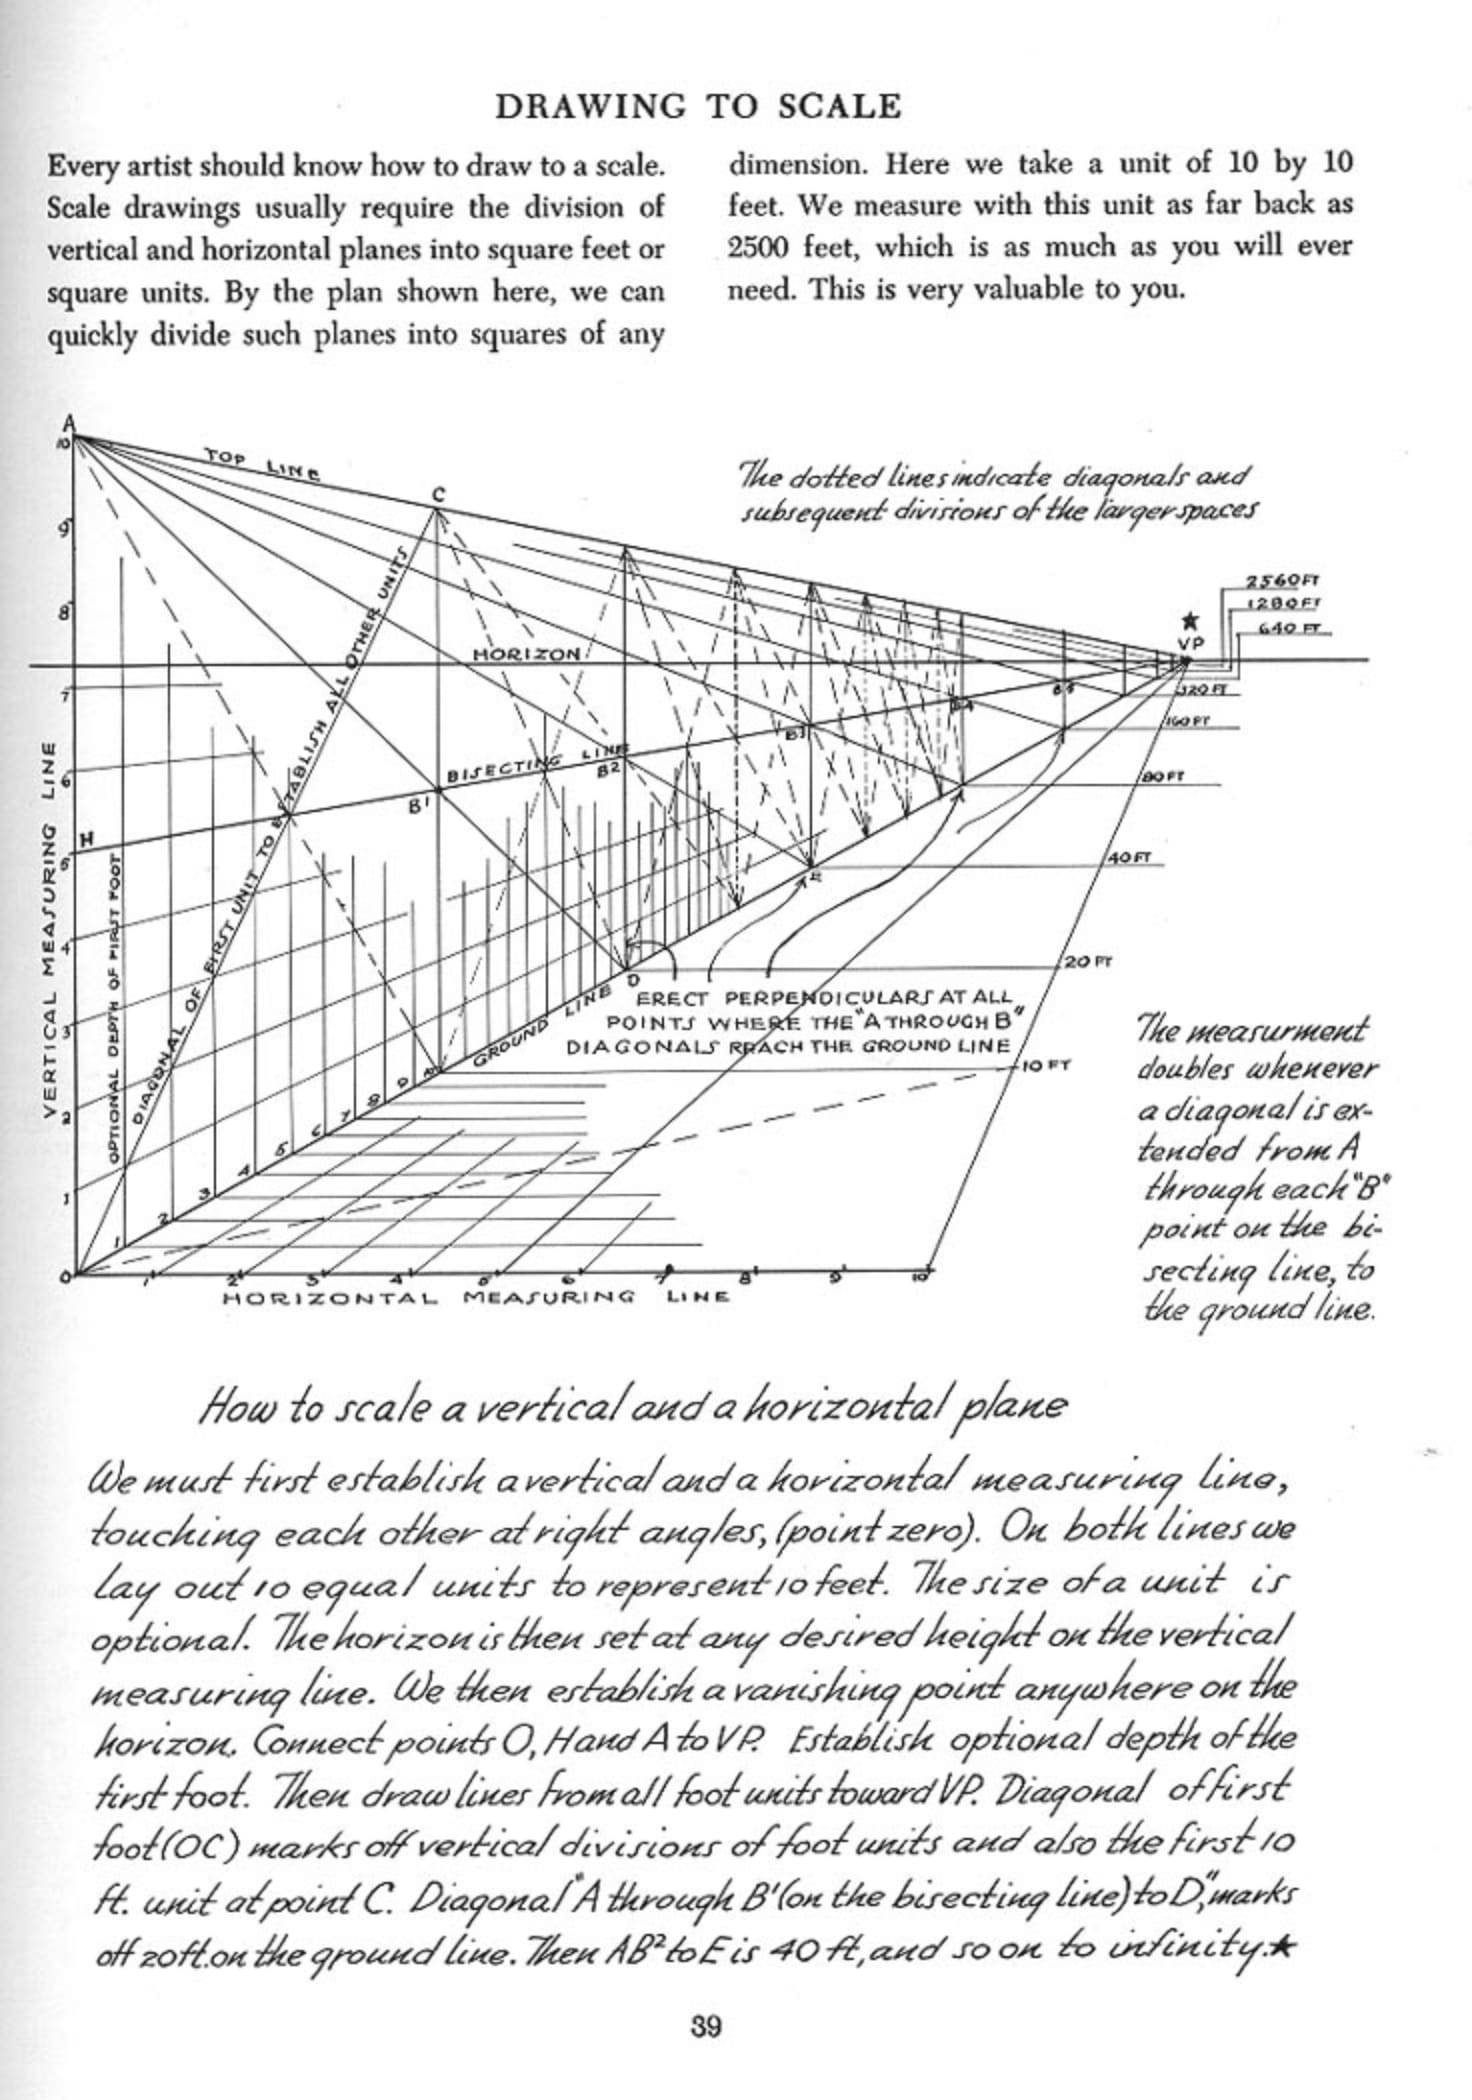 DRAWING TO SCALE
Every artist should know how to draw to a scale.
Scale drawings usually require the division of
vertical and horizontal planes into square feet or
square units. By the plan shown here, we can
quickly divide such planes into squares of any
dimension. Here we take a unit of 10 by 10
feet. We measure with this unit as far back as
2500 feet, which is as much as you will ever
need. This is very valuable to you.
A
10
9
8
7
6
5
4
3
2
1
0
H
VERTICAL MEASURING LINE
OPTIONAL DEPTH OF FIRST FOOT
DIAGONAL OF FIRST UNIT TO ESTABLISH ALL OTHER UNITS
TOP LINE
C
HORIZON
BISECTING LINE
B1
B2
B3
B4
B5
The dotted lines indicate diagonals and
subsequent divisions of the larger spaces
★
VP
2560 FT
1280 FT
640 FT
320 FT
160 FT
80 FT
40 FT
20 FT
10 FT
E
D
GROUND LINE
1
2
3
4
5
6
7
8
9
ERECT PERPENDICULARS AT ALL
POINTS WHERE THE "A THROUGH B"
DIAGONALS REACH THE GROUND LINE
1 2 3 4 5 6 7 8 9 10
HORIZONTAL MEASURING LINE
The measurment
doubles whenever
a diagonal is ex-
tended from A
through each "B"
point on the bi-
secting line, to
the ground line.
How to scale a vertical and a horizontal plane
We must first establish a vertical and a horizontal measuring line,
touching each other at right angles, (point zero). On both lines we
lay out 10 equal units to represent 10 feet. The size of a unit is
optional. The horizon is then set at any desired height on the vertical
measuring line. We then establish a vanishing point anywhere on the
horizon. Connect points O, H and A to VP. Establish optional depth of the
first foot. Then draw lines from all foot units toward VP. Diagonal of first
foot (OC) marks off vertical divisions of foot units and also the first 10
ft. unit at point C. Diagonal "A through B' (on the bisecting line) to D," marks
off 20 ft. on the ground line. Then AB² to E is 40 ft, and so on to infinity.★
39